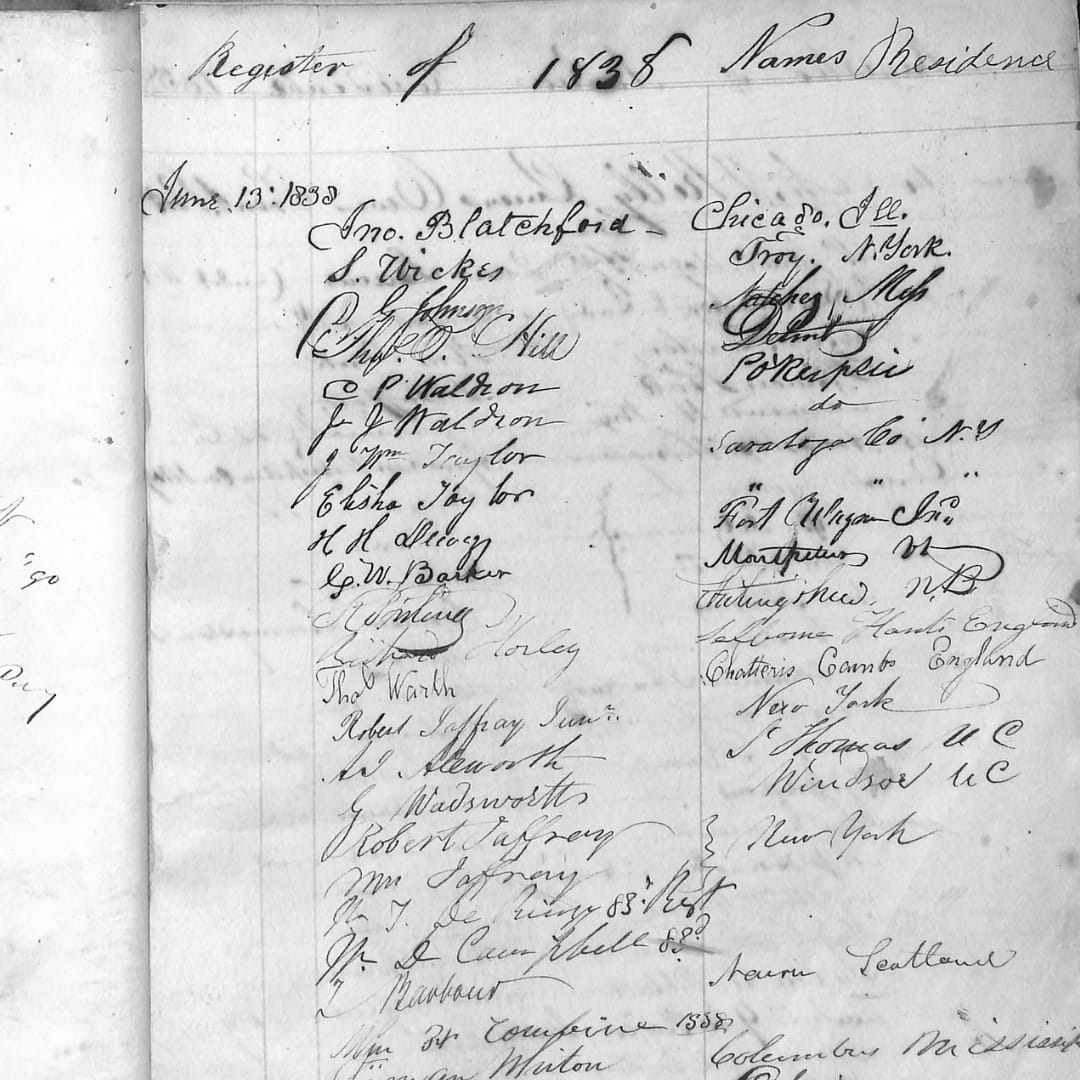 Register of 1838 Names Residence
June 13: 1838
Jno. Blatchford - Chicago. Ill.
S. Wickes Troy. N. York.
G Johnson Natchez Miss
Thos. O. Hill Detroit
C P Waldron Po'Keepsie
J. J Waldron do
J Wm Taylor Saratoga Co N.Y
Elisha Taylor " " "
H H Fort Wayne Ina
G. W. Barker Montpelier Vt
N.B
Richard Horley Selborne Hants England
Thos Warth Chatteris Cambs England
Robert Jaffray Junr. New York
A J St Thomas U C
G Wadsworth Windsor U C
Robert Jaffray } New York
Mrs Jaffray
83rd Regt
D Campbell 83rd
Barbour Nairn Scotland
Wm 1838
Minton Columbus Mississippi
go